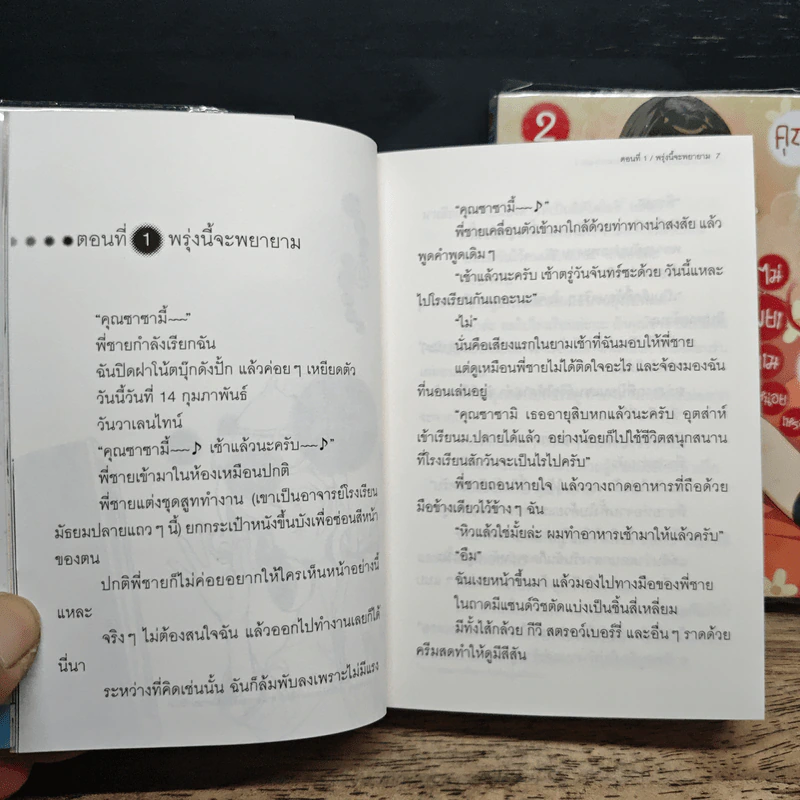 ตอนที่ 1 พรุ่งนี้จะพยายาม
"คุณซาซามี้~~"
พี่ชายกำลังเรียกฉัน
ฉันปิดฝาโน้ตบุ๊กดังปั้ก แล้วค่อยๆ เหยียดตัว
วันนี้วันที่ 14 กุมภาพันธ์
วันวาเลนไทน์
"คุณซาซามี้~~♪ เช้าแล้วนะครับ~~♪"
พี่ชายเข้ามาในห้องเหมือนปกติ
พี่ชายแต่งชุดสูททำงาน (เขาเป็นอาจารย์โรงเรียน
มัธยมปลายแถวๆ นี้) ยกกระเป๋าหนังขึ้นบังเพื่อซ่อนสีหน้า
ของตน
ปกติพี่ชายก็ไม่ค่อยอยากให้ใครเห็นหน้าอย่างนี้
แหละ
จริงๆ ไม่ต้องสนใจฉัน แล้วออกไปทำงานเลยก็ได้
นี่นา
ระหว่างที่คิดเช่นนั้น ฉันก็ล้มพับลงเพราะไม่มีแรง
ตอนที่ 1 / พรุ่งนี้จะพยายาม 7
"คุณซาซามี้~~♪"
พี่ชายเคลื่อนตัวเข้ามาใกล้ด้วยท่าทางน่าสงสัย แล้ว
พูดคำพูดเดิมๆ
"เช้าแล้วนะครับ เช้าตรู่วันจันทร์ซะด้วย วันนี้แหละ
ไปโรงเรียนกันเถอะนะ"
"ไม่"
นั่นคือเสียงแรกในยามเช้าที่ฉันมอบให้พี่ชาย
แต่ดูเหมือนพี่ชายไม่ได้ติดใจอะไร และจ้องมองฉัน
ที่นอนเล่นอยู่
"คุณซาซามิ เธออายุสิบหกแล้วนะครับ อุตส่าห์
เข้าเรียนม.ปลายได้แล้ว อย่างน้อยก็ไปใช้ชีวิตสนุกสนาน
ที่โรงเรียนสักวันจะเป็นไรไปครับ"
พี่ชายถอนหายใจ แล้ววางถาดอาหารที่ถือด้วย
มือข้างเดียวไว้ข้างๆ ฉัน
"หิวแล้วใช่มั้ยล่ะ ผมทำอาหารเช้ามาให้แล้วครับ"
"อืม"
ฉันเงยหน้าขึ้นมา แล้วมองไปทางมือของพี่ชาย
ในถาดมีแซนด์วิชตัดแบ่งเป็นชิ้นสี่เหลี่ยม
มีทั้งไส้กล้วย กีวี สตรอว์เบอร์รี่ และอื่นๆ ราดด้วย
ครีมสดทำให้ดูมีสีสัน
2
คุณ
ไม่